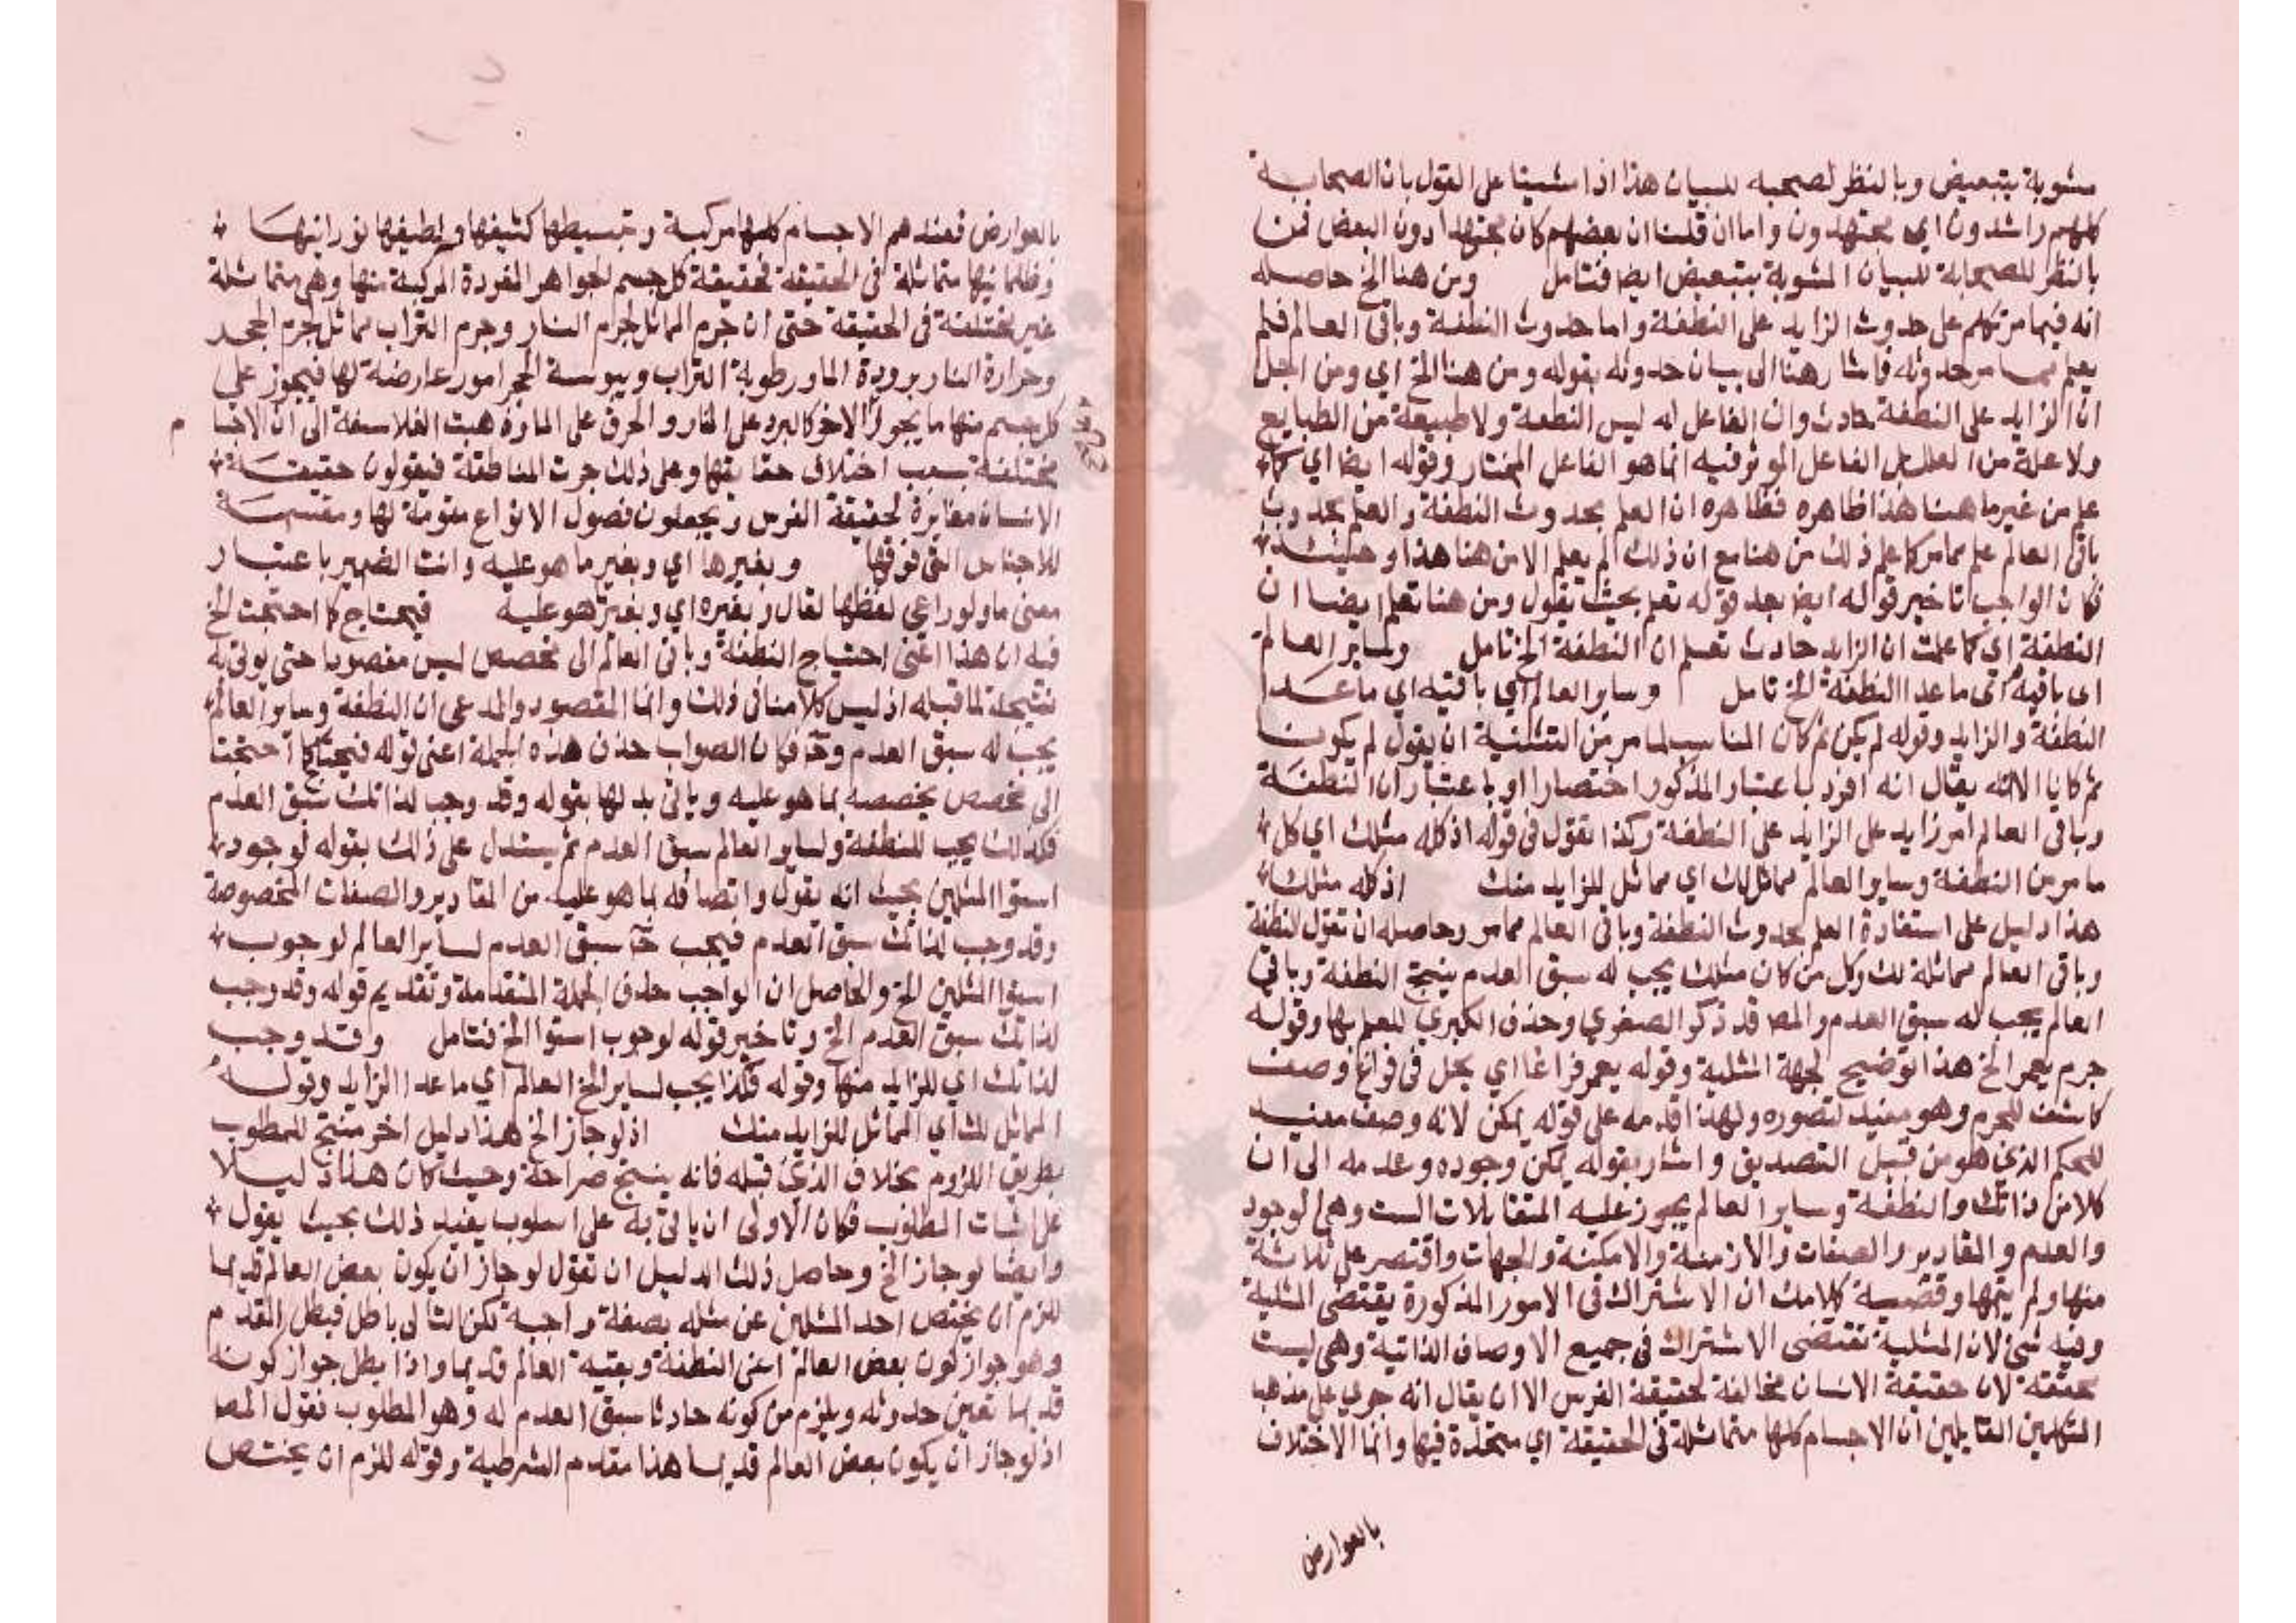 مشوبة بتبعيض وبالنظر لصحبه للبيان هذا اذا مشينا على القول بان الصحابة
كلهم راشدون اي مجتهدون واما ان قلنا ان بعضهم كان مجتهدا دون البعض فمن
بالنظر للصحابة للبيان المشوبة بتبعيض ايضا فتامل ومن هنا الخ حاصله
انه فيما مر تكلم على حدوث الزايد على النطفة واما حدوث النطفة وباقي العالم فلم
يعلم مما مر حدوثه فاشار هنا الى بيان حدوثه بقوله ومن هنا الخ اي ومن اجل
ان الزايد على النطفة حادث وان الفاعل له ليس النطفة ولا طبيعة من الطبايع
ولا علة من العلل بل الفاعل الموثر فيه انما هو الفاعل المختار وقوله ايضا اي كما
علم من غير ما هنا هذا ظاهره فظاهره ان العلم بحدوث النطفة والعلم بحدوث
باقي العالم علم مما مر كما علم ذلك من هنا مع ان ذلك لم يعلم الا من هنا هذا وحينئذ
فكان الواجب تاخير قوله ايضا بعد قوله تعلم بحيث يقول ومن هنا تعلم ايضا ان
النطفة اي كما علمت ان الزايد حادث تعلم ان النطفة الخ تامل ولساير العالم
اى باقيه اى ما عدا النطفة الخ تامل وساير العالم اي باقيه اي ما عدا
النطفة والزايد وقوله لم يكن ثم كان المناسب لما مر من التثنية ان يقول لم يكونا
ثم كانا الا انه يقال انه افرد باعتبار المذكور اختصارا او باعتبار ان النطفة
وباقي العالم امر زايد على الزايد على النطفة وكذا تقول في قوله اذ كله مثلك اي كل
ما مر من النطفة وساير العالم مماثل لك اي مماثل للزايد منك اذ كله مثلك
هذا دليل على استفادة العلم بحدوث النطفة وباقي العالم مما مر وحاصله ان تقول النطفة
وباقي العالم مماثلة لك وكل من كان مثلك يجب له سبق العدم ينتج النطفة وباقي
العالم يجب له سبق العدم والمص قد ذكر الصغري وحذف الكبري للعلم بها وقوله
جرم يعمر الخ هذا توضيح لجهة المثلية وقوله يعمر فراغا اي يحل في فراغ وصف
كاشف للجرم وهو مفيد لتصوره ولهذا قدمه على قوله يمكن لانه وصف مفيد
للحكم الذي هو من قبيل التصديق واشار بقوله يمكن وجوده وعدمه الى ان
كلا من ذاتك والنطفة وساير العالم يجوز عليه المتقابلات الست وهي الوجود
والعدم والمقادير والصفات والازمنة والامكنة والجهات واقتصر على ثلاثة
منها ولم يتمها وقضية كلامك ان الاشتراك في الامور المذكورة يقتضى المثلية
وفيه شئ لان المثلية تقتضى الاشتراك في جميع الاوصاف الذاتية وهي ليست
محققة لان حقيقة الانسان مخالفة لحقيقة الفرس الا ان يقال انه جري على مذهب
المتكلمين القايلين ان الاجسام كلها متماثلة في الحقيقة اي متحدة فيها وانما الاختلاف
بالعوارض
بالعوارض فعندهم الاجسام كلها مركبة وبسيطها كثيفها ولطيفها نورانيها
وظلمانيها متماثلة في الحقيقة فحقيقة كل جسم الجواهر المفردة المركبة منها وهي متماثلة
غير مختلفة في الحقيقة حتى ان جرم الما مماثل لجرم النار وجرم التراب مماثل لجرم الحجر
وحرارة النار برودة الما ورطوبة التراب ويبوسة الحجر امور عارضة لها فيجوز على
كل جسم منها ما يجوز الاخر كالبرد على النار والحرق على الما وذهبت الفلاسفة الى ان الاجسا م
مختلفة بسبب اختلاف حقايقها وعلى ذلك جرت المناطقة فيقولون حقيقة
الانسان مغايرة لحقيقة الفرس ويجعلون فصول الانواع مقومة لها ومقسمة
للاجناس التي فوقها وبغيرها اي وبغير ما هو عليه وانث الضمير باعتبار
معنى ما ولو راعي لفظها لقال وبغيره اي وبغير هو عليه فيحتاج كما احتجت الخ
فيه ان هذا اعني احتياج النطفة وباقي العالم الى مخصص ليس مقصودا حتى يوتى به
نتيجة لما قبله اذ ليس كلامنا في ذلك وانما المقصود والمدعى ان النطفة وساير العالم
يجب له سبق العدم وح فكان الصواب حذف هذه الجملة اعني قوله فيحتاج كما احتجت
الى مخصص يخصصه بما هو عليه وياتى بدلها بقوله وقد وجب لذاتك سبق العدم
فكذلك يجب للنطفة ولساير العالم سبق العدم ثم يستدل على ذلك بقوله لوجود
استوا المثلين بحيث انه يقول واتصافه بما هو عليه من المقادير والصفات المخصوصة
وقد وجب لذاتك سبق العدم فيجب ح سبق العدم لساير العالم لوجوب
استوا المثلين الخ والحاصل ان الواجب حذف الجملة المتقدمة وتقديم قوله وقد وجب
لذاتك سبق العدم الخ وتاخير قوله لوجوب استوا الخ فتامل وقد وجب
لذاتك اي للزايد منها وقوله فكذا يجب لساير الخ العالم اي ما عدا الزايد وقوله
المماثل لك اي المماثل للزايد منك اذ لو جاز الخ هذا دليل اخر منتج للمطلوب
بطريق اللزوم بخلاف الذي قبله فانه ينتج صراحة وحيث كان هذا دليلا
على اثبات المطلوب فكان الاولى ان ياتى به على اسلوب يفيد ذلك بحيث يقول
وايضا لو جاز الخ وحاصل ذلك الدليل ان تقول لو جاز ان يكون بعض العالم قديما
للزم ان يختص احد المثلين عن مثله بصفة واجبة لكن التالى باطل فبطل المقدم
وهو جواز كون بعض العالم اعنى النطفة وبقية العالم قديما واذا بطل جواز كونه
قديما تعين حدوثه ويلزم من كونه حادثا سبق العدم له وهو المطلوب فقول المص
اذ لو جاز ان يكون بعض العالم قديما هذا مقدم الشرطية وقوله للزم ان يختص